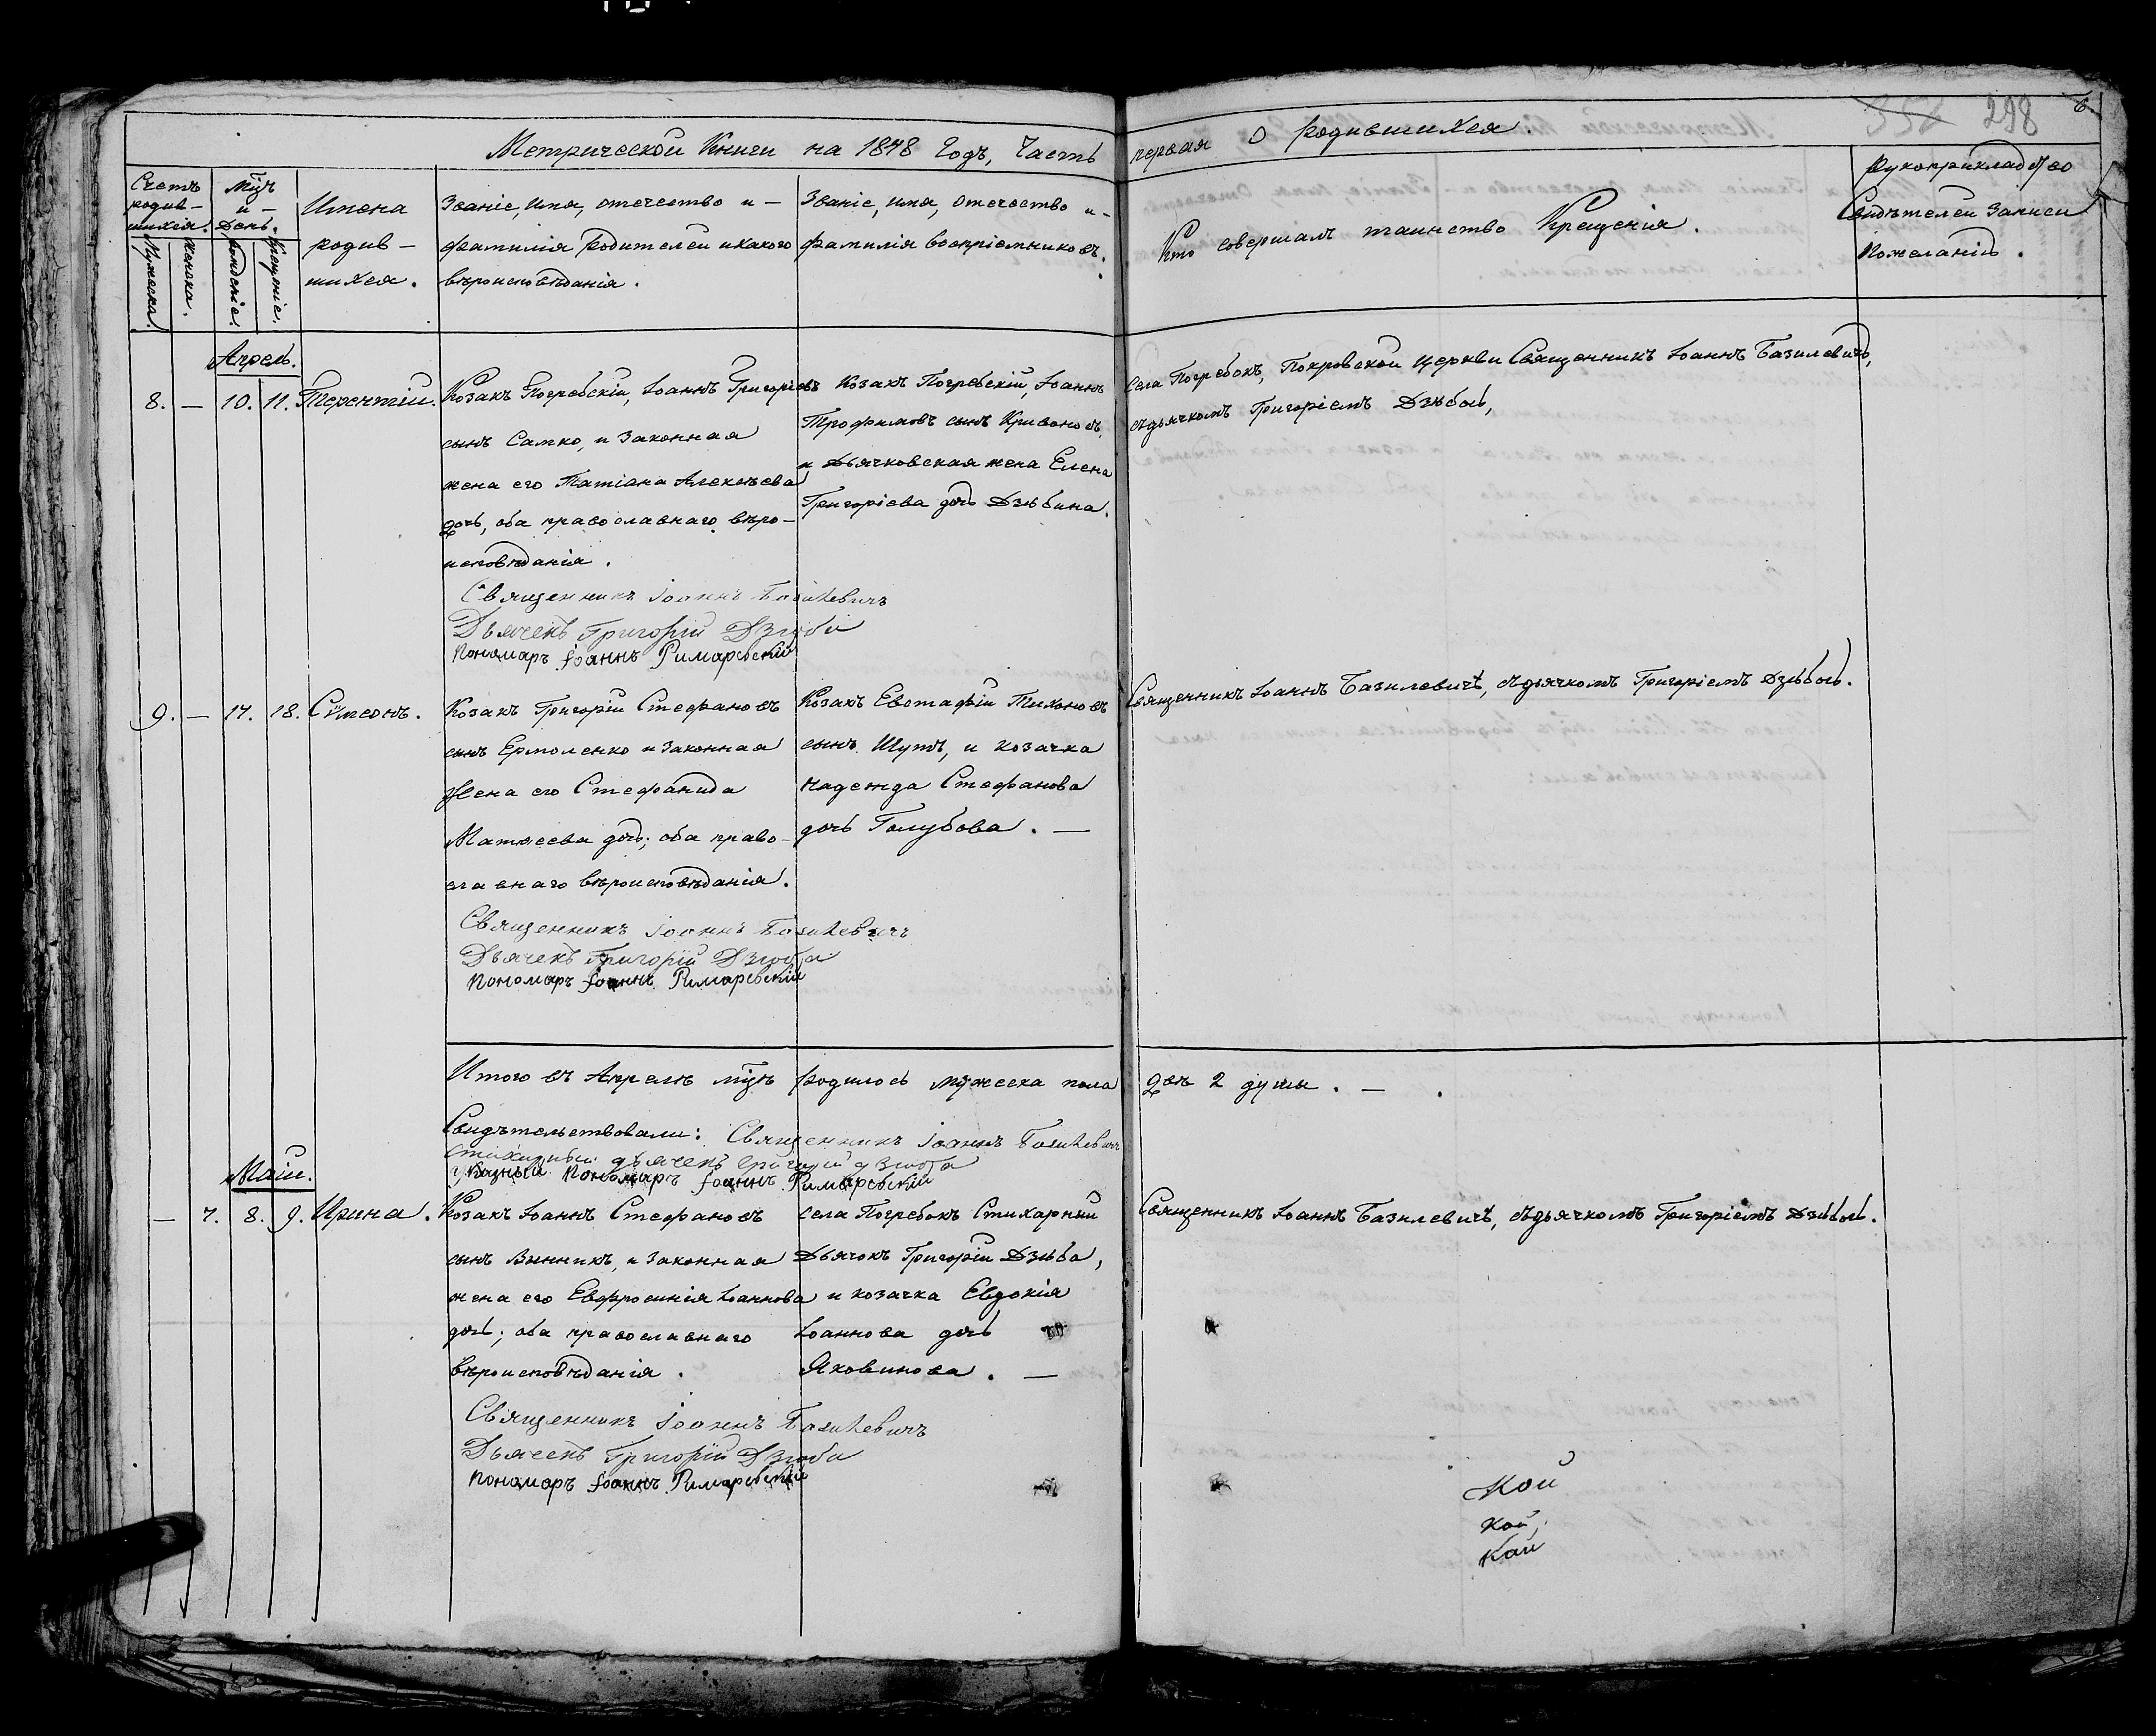 358 298
6.
Метрической Книги на 1848 Годъ, Часть первая о родившихся.
Счетъ родив-шихся.
Мужеска.
Женска.
Мцъ и День.
Рожденіе.
Крещеніе.
Имена
родив-
шихся.
Званіе, имя, отечество и-
фамилія Родителей и какого
вѣроисповѣданія.
Званіе, имя, отечество и-
фамилія воспріемниковъ.
Кто совершалъ таинство Крещенія.
Рукоприкладство
Свидѣтелей Записи
Пожеланію.
Апрель.
8. — 10. 11. Терентій.
Козакъ Погребскій, Іоаннъ Григоріевъ
сынъ Самко, и Законная
жена его Татіана Алексѣева
дочь, оба православнаго вѣро-
исповѣданія.
Козакъ Погребскій, Іоаннъ
Трофимовъ сынъ Кривоносъ,
и Дьячковская жена Елена
Григоріева дочь Дзюбина.
Села Погребокъ, Покровской церкви Священникъ Іоаннъ Базилевичъ,
съдьячкомъ Григоріемъ Дзюбою,
Священникъ Іоаннъ Базилевичъ
Дьячекъ Григорій Дзюба
Пономарь Іоаннъ Римаревскій
9. — 17. 18. Симеонъ.
Козакъ Григорій Стефановъ
сынъ Ермоленко и Законная
Жена его Стефанида
Матѳеева дочь; оба право-
славнаго вѣроисповѣданія.
Козакъ Евстафій Тихоновъ
сынъ Шутъ, и козачка
Надежда Стефанова
дочь Голубова. —
Священникъ Іоаннъ Базилевичъ, съдьячкомъ Григоріемъ Дзюбою.
Священникъ Іоаннъ Базилевичъ
Дьячекъ Григорій Дзюба
Пономарь Іоаннъ Римаревскій
Итого въ Апрелѣ мцѣ родилось мужеска пола двѣ 2 души. —
Свидѣтельствовали: Священникъ Іоаннъ Базилевичъ
Стихарный дьячекъ Григорій Дзюба
Пономарь Іоаннъ Римаревскій
Маій.
— 7. 8. 9. Ирина.
Козакъ Іоаннъ Стефановъ
сынъ Винникъ, и Законная
жена его Евфросинія Іоаннова
дочь; оба православнаго
вѣроисповѣданія.
Села Погребокъ Стихарный
Дьячокъ Григорій Дзюба,
и козачка Евдокія
Іоаннова дочь
Яковинова. —
Священникъ Іоаннъ Базилевичъ, съдьячкомъ Григоріемъ Дзюбою.
Священникъ Іоаннъ Базилевичъ
Дьячекъ Григорій Дзюба
Пономарь Іоаннъ Римаревскій
Кой
Кой
Кой